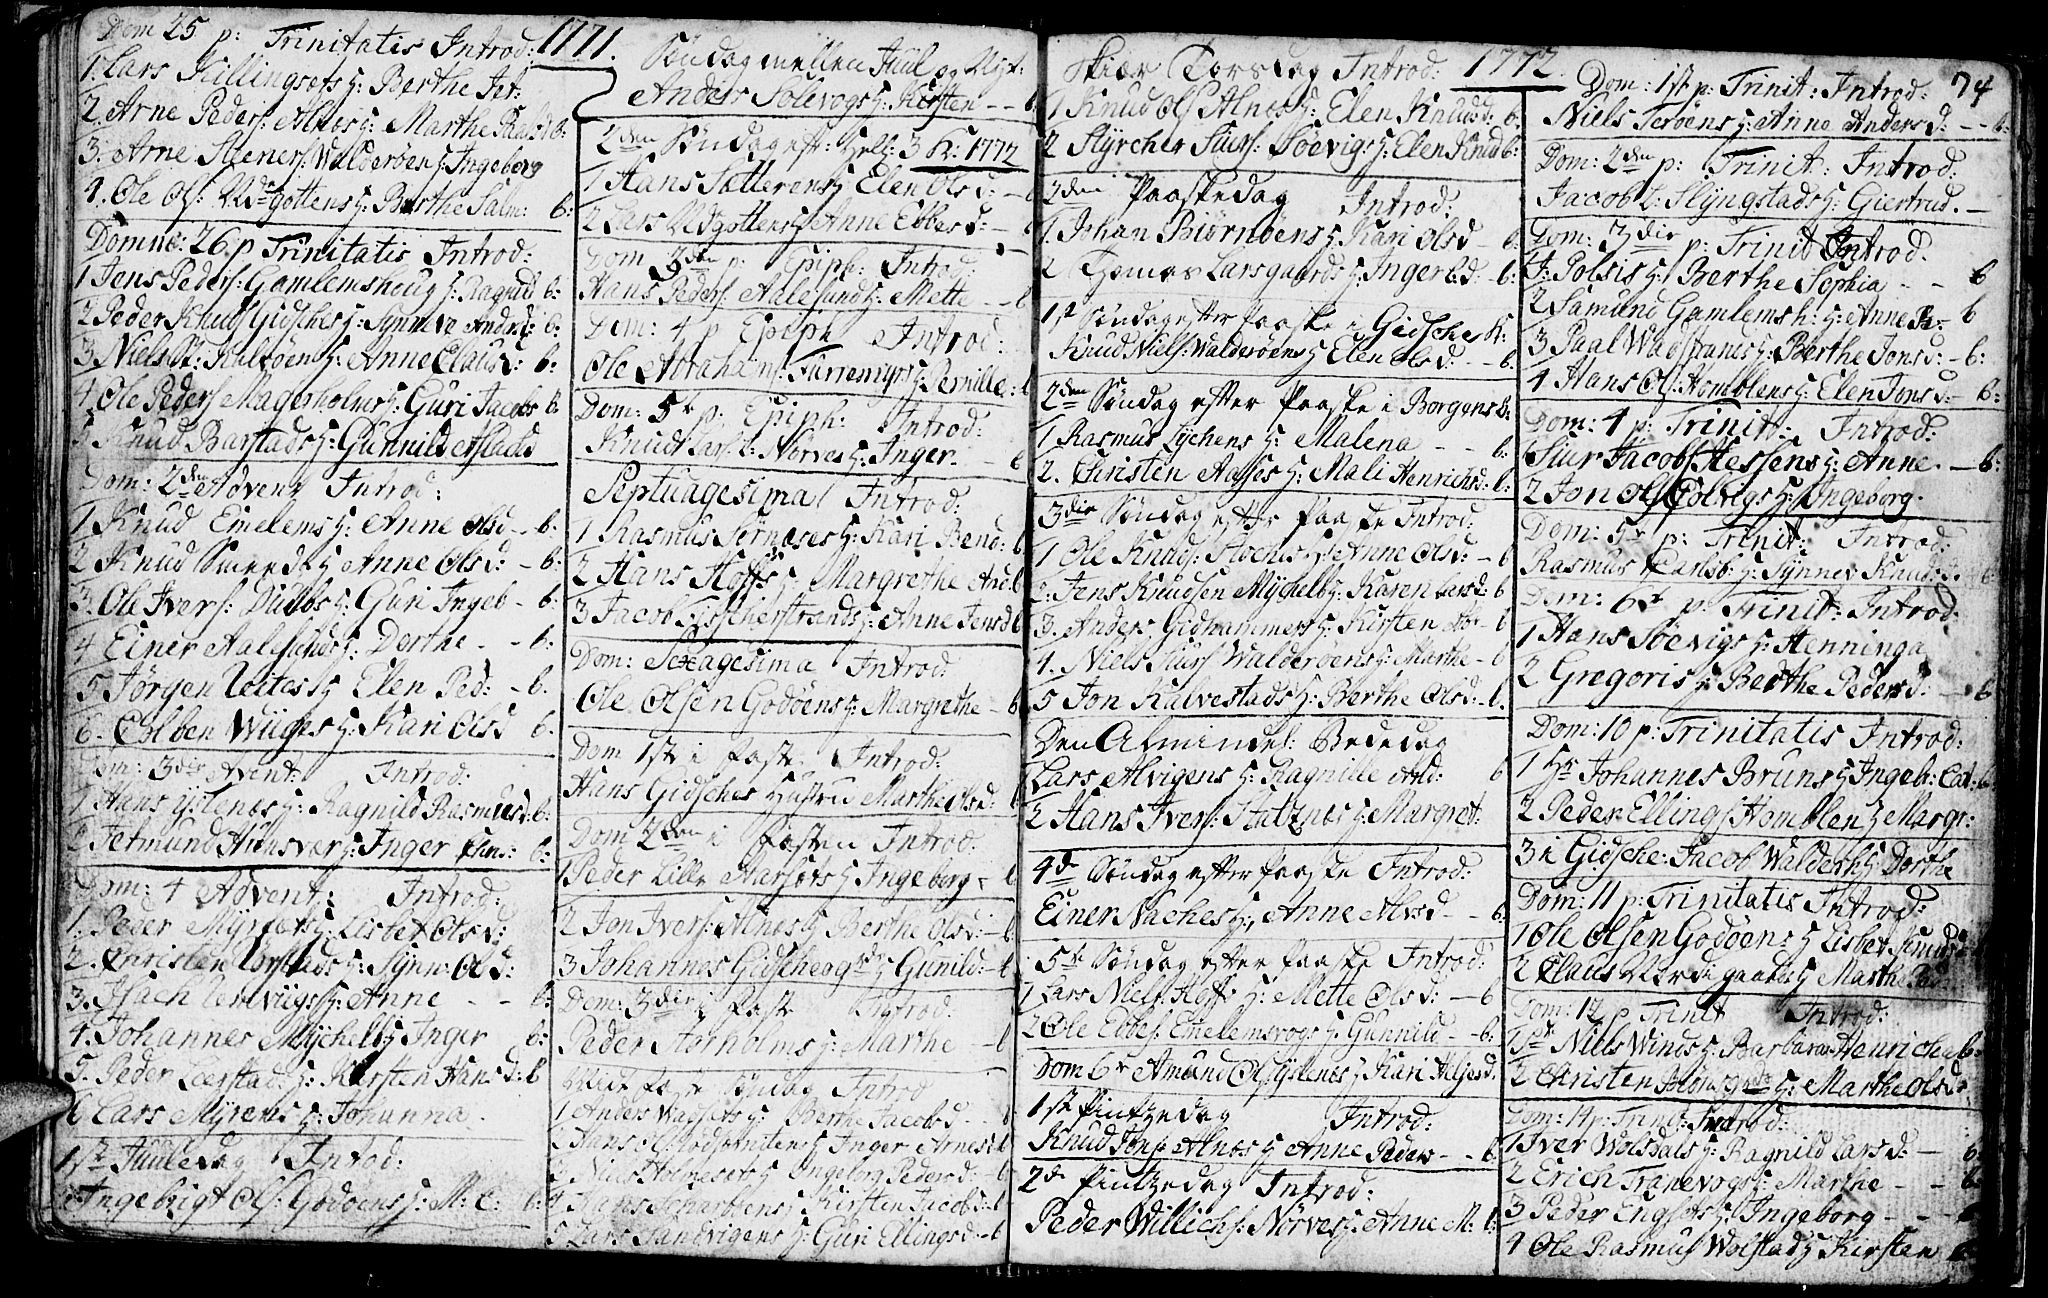 Dom 25 p: Trinitatis Introd: 1771.
1. Lars Killingsets H: Berthe Jet:
2 Arne Peders: Alnes H: Marthe Rasd b:
3. Arne Steners: Walderøen H Ingeborg
4. Ole Ols: Udgottens H: Berthe Salm: b:
Domnc: 26 p Trinitatis Introd:
1 Jens Peders: Gamlemshoug H: Ragnild b:
2 Peder Knuds Gidsches H: Synneve Andrd: b:
3. Niels Kalvøen H: Anne Clausd: b:
4 Ole Peders Magerholms H: Guri Jacobs b:
5 Knud Barstads H: Gunnild Aslachd
Dom: 2den Advent Introd:
1 Knud Emelems H: Anne Olsd - b:
2 Knud H Anne Olsd: - b:
3. Ole Ivers: H: Guri Ingeb - b:
4 Einer Aalesunds H: Dorthe - - b:
5 Jørgen H Elen Ped: - b.
6. Colben Wiiges H: Kari Olsd b.
Dom: 3die Advent: Introd:
1 Hans Ystenes H: Ragnild Rasmusd: b:
2 Jetmund Hunsver H: Inger b:
Dom: 4 Advent: Introd:
1. Peder H: Lisbet Olsd:
2. Christen H: Synnv: Olsd:
3. Isach H: Anne - - b:
4. Johannes Myckelb H Inger b:
5. Peder Leerstad H: Kirsten Hansd: b
6 Lars Myrens H: Johanna.
1st Juuledag Introd:
Ingebrigt Ols: Godøens H: M: C: b:
Søndag mellem Juul og Nyt:
Anders Solevogs H: Kirsten - - b
2den Søndag eft: Hell: 3 K: 1772
1 Hans Satterens H Elen Olsd: - b
2 Lars Udgottens H Anne Ebbesd: - b
Dom 3den p: Epiph: Introd:
Hans Peders: Aalesund H: Mette - - b
Dom: 4 p Epiph Introd:
Ole Abrahams: Furremyr H: Pernille: b
Dom: 5te p: Epiph: Introd:
Knud Lars: l: Nørves H: Inger - - b
Septuagesima Introd:
1 Rasmus H: Kari Bend: b
2 Hans Hoffs H. Margrethe And b
3 Jacob Fischerstrands H: Anne Jensd b
Dom: Sexagesima Introd:
Ole Olsen Godøens H: Margrethe - b
Dom 1st i Faste Introd:
Hans Gidsches Hustru Marthe Olsd: b
Dom 2den i Fasten Introd:
1 Peder Lille H Ingeborg - b
2 Jon Ivers: Alnes H Berthe Olsd: - b
3 Johannes Gidschegrds H Gunild: - b
Dom: 3die i Fast Introd:
Peder Storholms H: Marthe - b
Introd
1 Anders Wagsets H: Berthe Jacobsd - - b
2 Hans H Inger Arnesd b
3 Niels H Ingeborg Pedersd: - b
4 Hans H Kirsten Jacobsd: - b
5 Lars Sandvigens H: Guri Ellingsd: - b
Skier Torsdag Introd: 1772.
1 Knud Ols Alnes H: Elen Knudsd: b:
2 Styrcher Siurs: Søevigs H: Elen Knud b:
2den Paaskedag Introd:
1. Johan Biørnøens H Kari Olsd - b:
2 Thomas Larsgaards H: Inger Ed: - b:
1st Søndag efter Paaske i Gidsche K:
Knud Niels: Walderøens H Elen Olsd: - - b:
2den Søndag efter Paaske i Borgens K:
1 Rasmus Lychens H: Malena - - b:
2. Christen Aasses H: Mali Henrichsd: b:
3die Søndag efter Paaske Introd:
1 Ole Knuds: H: Anne Olsd: - b
2. Jens Knudsen Myckelb H: Karen Larsd: b
3. Anders Gidhammer H: Kirsten - b
4. Niels Siurs Walderøens H: Marthe - b
5 Jon Kalvestads H: Berthe Olsd: - b.
Den Almindel: Bededag
1 Lars Alvigens H: Ragnille And: b
2 Hans Ivers: Statznes H: Margret:
4de Søndag efter Paaske Introd:
Einer Naches H, Anne Alvsd - - b:
5te Søndag efter Paaske Introd:
1 Lars Niels: Hoffs H: Mette Olsd: - b
2 Ole Ebbes: Emelemsvogs H: Gunnild - b:
Dom 6te Amund Ols Ystenes H Kari Heljesd.
1st Pintzedag Introd:
Knud Alnes H Anne Peders - - b
2de Pintzedag Introd:
Peder Willichs: Nørves H: Anne M: b:
Dom: 1st p: Trinit: Introd: 74
Niels Terøens H: Anne Andersd: - - b:
Dom: 2den p: Trinit: Introd:
Jacob L: Slyngstads H: Giertrud. -
Dom: 3die p: Trinit Introd.
1: H: Berthe Sophia - - b
2 Samund Gamlemsh: H: Anne - b
3 Paal H: Berthe Jonsd: - b:
4 Hans Ol: Homblens H: Elen Jonsd: - b:
Dom: 4 p: Trinit: Introd:
1 Siur Jacobs Hessens H: Anne. - b:
2 Jon Ols Colvigs H: Ingeborg.
Dom: 5te p: Trinit: Introd:
Rasmus H: Synnev Knudsd. b:
Dom: 6te p: Trinit: Introd:
1 Hans Søevigs H: Henninga
2 Gregoris H: Berthe Pedersd: - b
Dom: 10 p: Trinitatis Introd:
1 Hr Johannes Bruns H Ingeb: Cat: b
2 Peder Ellings Homblen H Margr:
3 i Gidsche: Jacob H Dorthe
Dom: 11 p: Trinitatis Introd:
1 Ole Olsen Godøens H Lisbet Knudsd
2 Claus H Marthe
Dom: 12 p Trinit Introd:
1 Niels Winds H: Barbara Henricha b:
2 Christen H: Marthe Olsd:
Dom: 14 p: Trinit: Introd:
1 Iver Wolsdals H: Ragnild Larsd: - b:
2 Erich Tranevogs H: Marthe - - b
3 Peder Engsets H: Ingeborg - - -
4 Ole Rasmus Wolstad H Kirsten